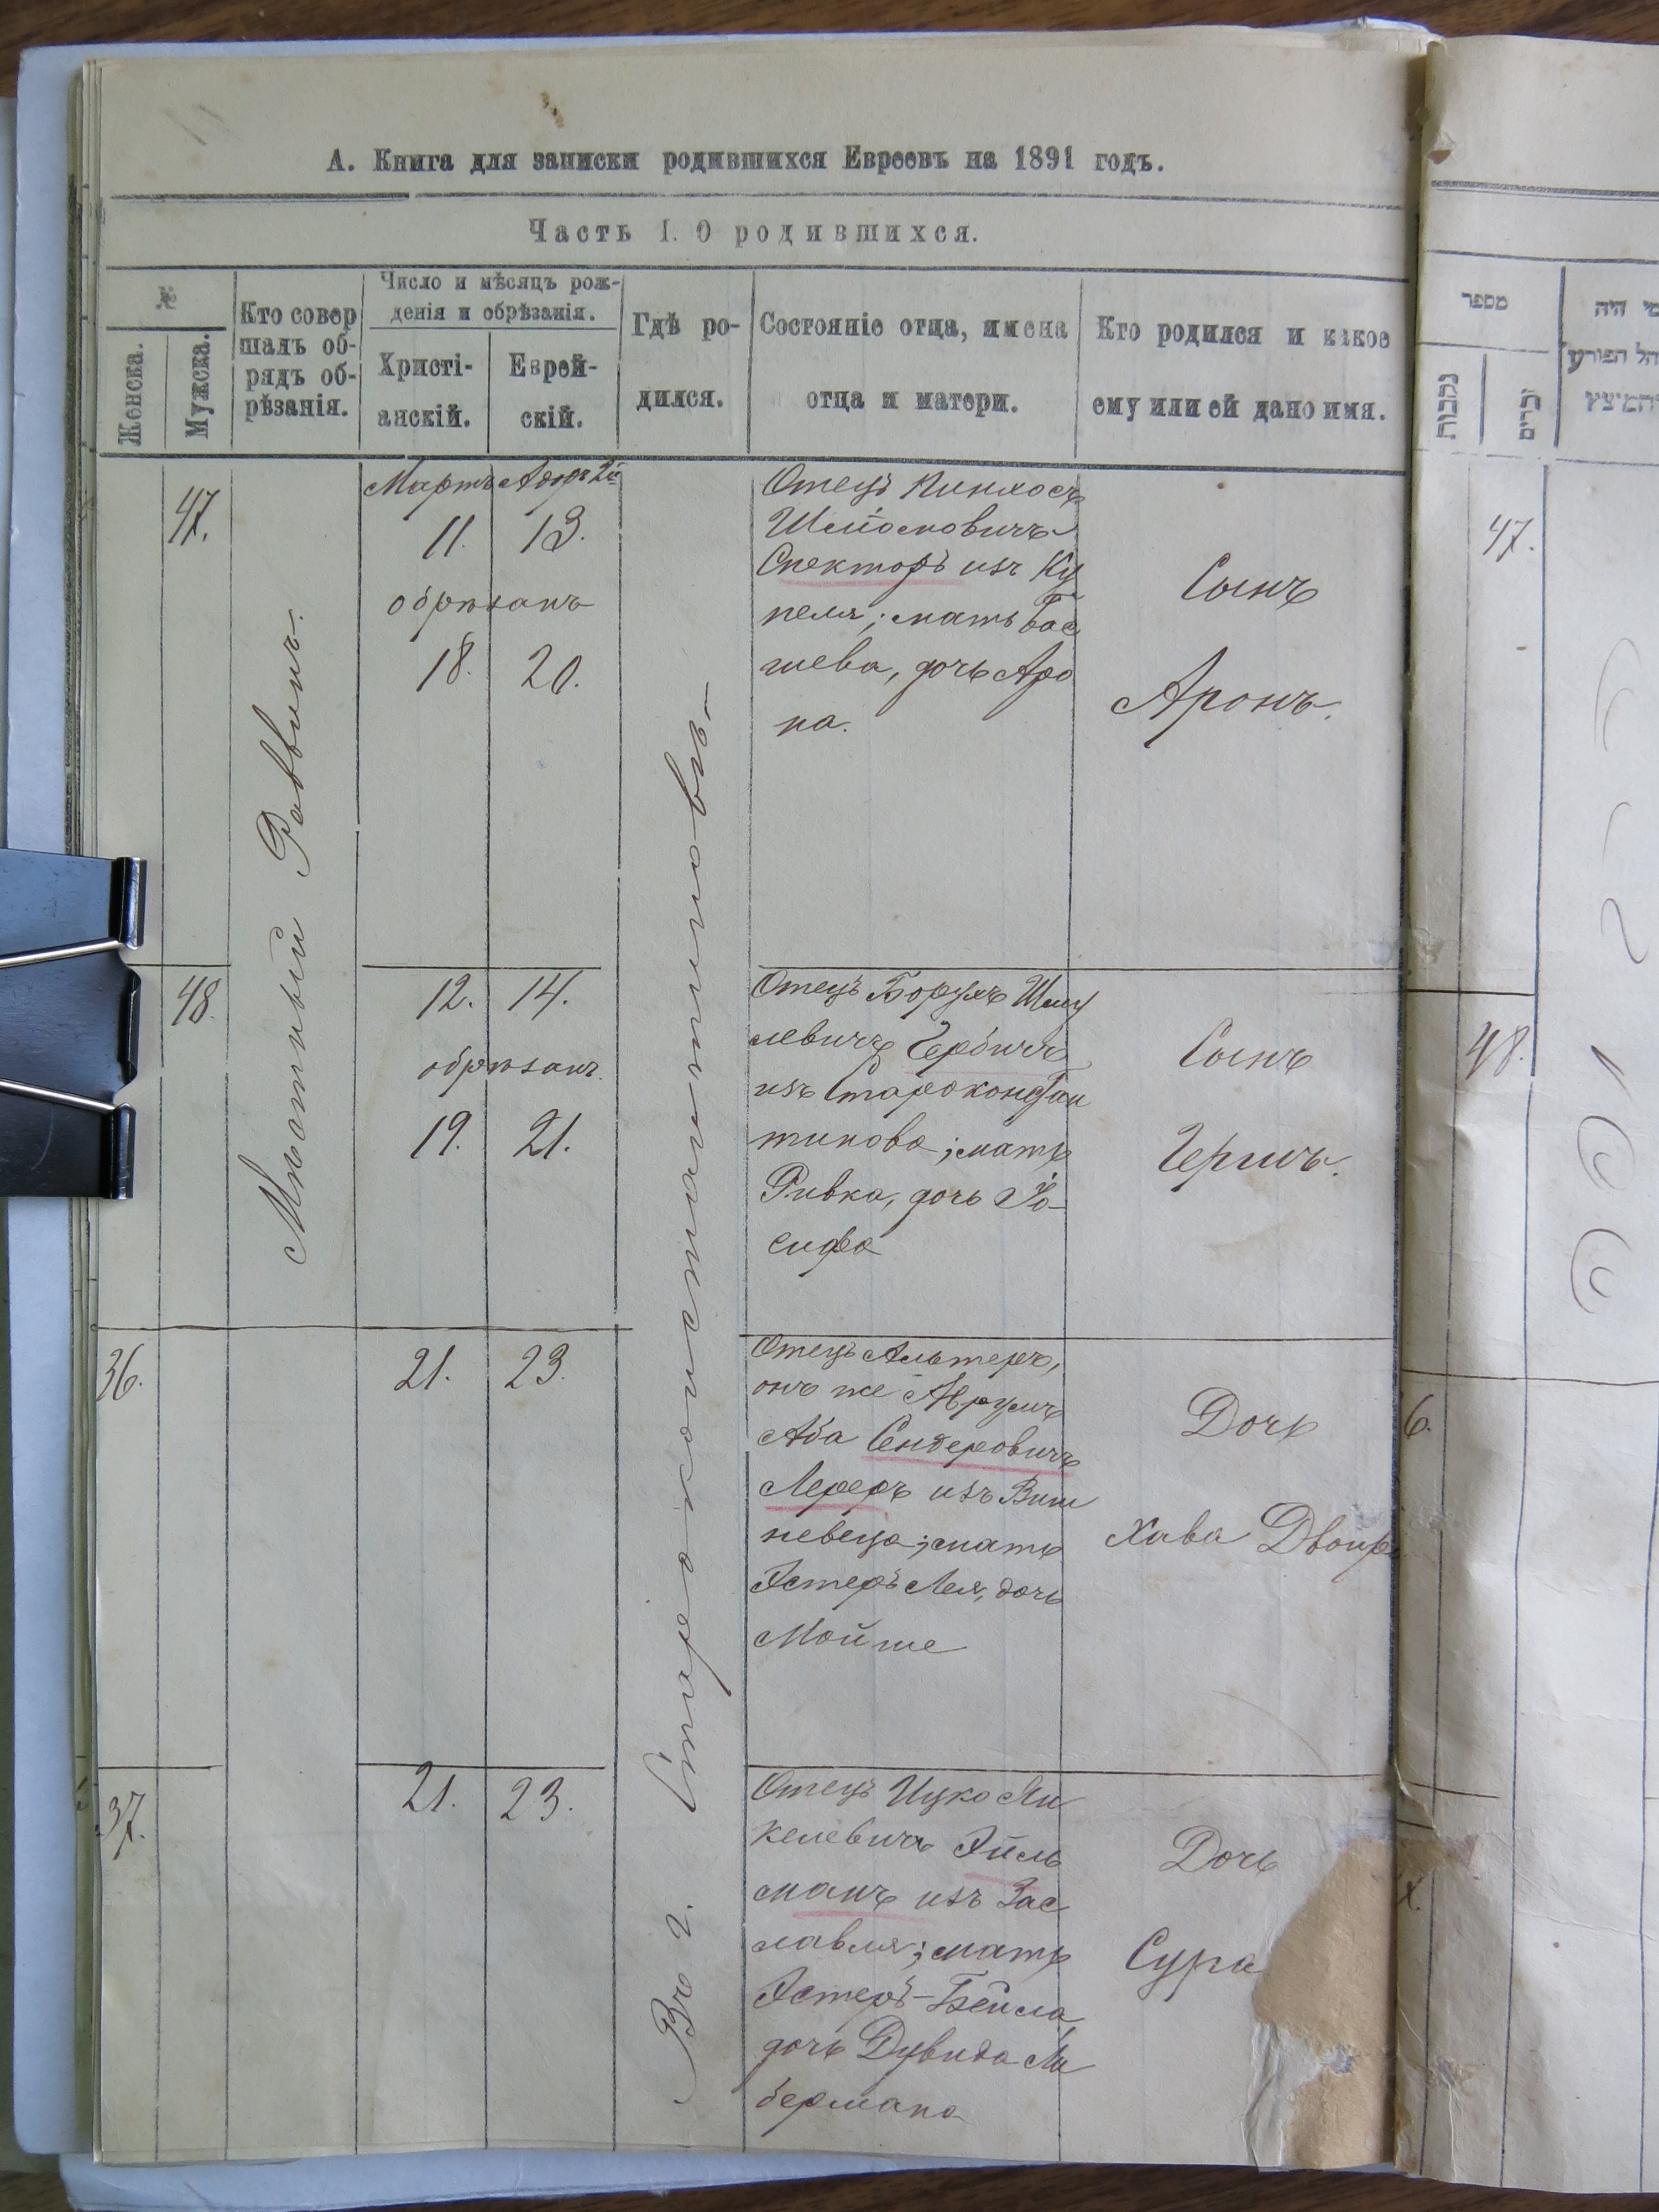 А. Книга для записки родившихся Евреевъ на 1891 годъ.
Часть I. О родившихся.
№
Женска.
Мужска.
Кто совер
шалъ об-
рядъ об-
рѣзанія.
Число и мѣсяцъ рож-
денія и обрѣзанія.
Христі-
анскій.
Еврей-
скій.
Гдѣ ро-
дился.
Состояніе отца, имена
отца и матери.
Кто родился и какое
ему или ей дано имя.
Мѣстный Раввинъ.
Въ г. Староконстантиновѣ
47.
Мартъ Адаръ 2й
11. 13.
обрѣзанъ
18. 20.
Отецъ Пинхосъ
Шліомовичъ
Спекторъ изъ Ку
пеля; мать Бас
шева, дочь Аро
на.
Сынъ
Аронъ.
48.
12. 14.
обрѣзанъ.
19. 21.
Отецъ Борухъ Шму
левичъ Гербичъ
изъ Староконстан
тинова; мать
Ривка, дочь Іо-
сифа
Сынъ
Гершъ.
36.
21. 23.
Отецъ Альтеръ,
онъ же Аврумъ
Аба Сендеровичъ
Лереръ изъ Виш
невеца; мать
Эстеръ Лея, дочь
Мойше
Дочь
Хава Двойра
37.
21. 23.
Отецъ Ицко Ян
келевичъ Эйль
манъ изъ Зас
лавля; мать
Эстеръ-Бейла
дочь Дувида Ли
бермана
Дочь
Сура
מספר
נקבות
זכרים
מי היה
47.
48.
6.